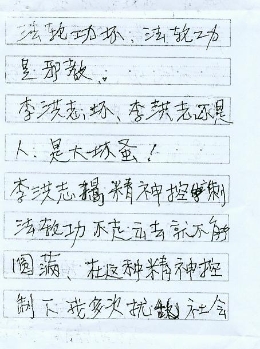 法轮功坏、法轮功
是邪教。
李洪志坏、李洪志不是
人、是大坏蛋！
李洪志搞精神控制
法轮功不走出去就不能
圆满、在这种精神控
制下我多次扰乱社会